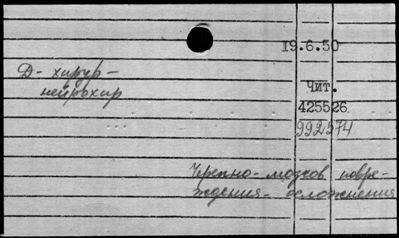 19.6.50
Д- хирур-
нейрохир
Чит.
425526
992574
Черепно-мозгов. повре-
ждения- осложнения